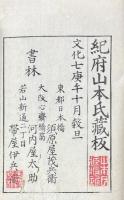 紀府山本氏藏板
文化七庚午十月穀旦
書林
東都日本橋
須原屋茂兵衛
大坂心齋橋
河内屋太助
若山新通二丁目
帶屋伊兵衛